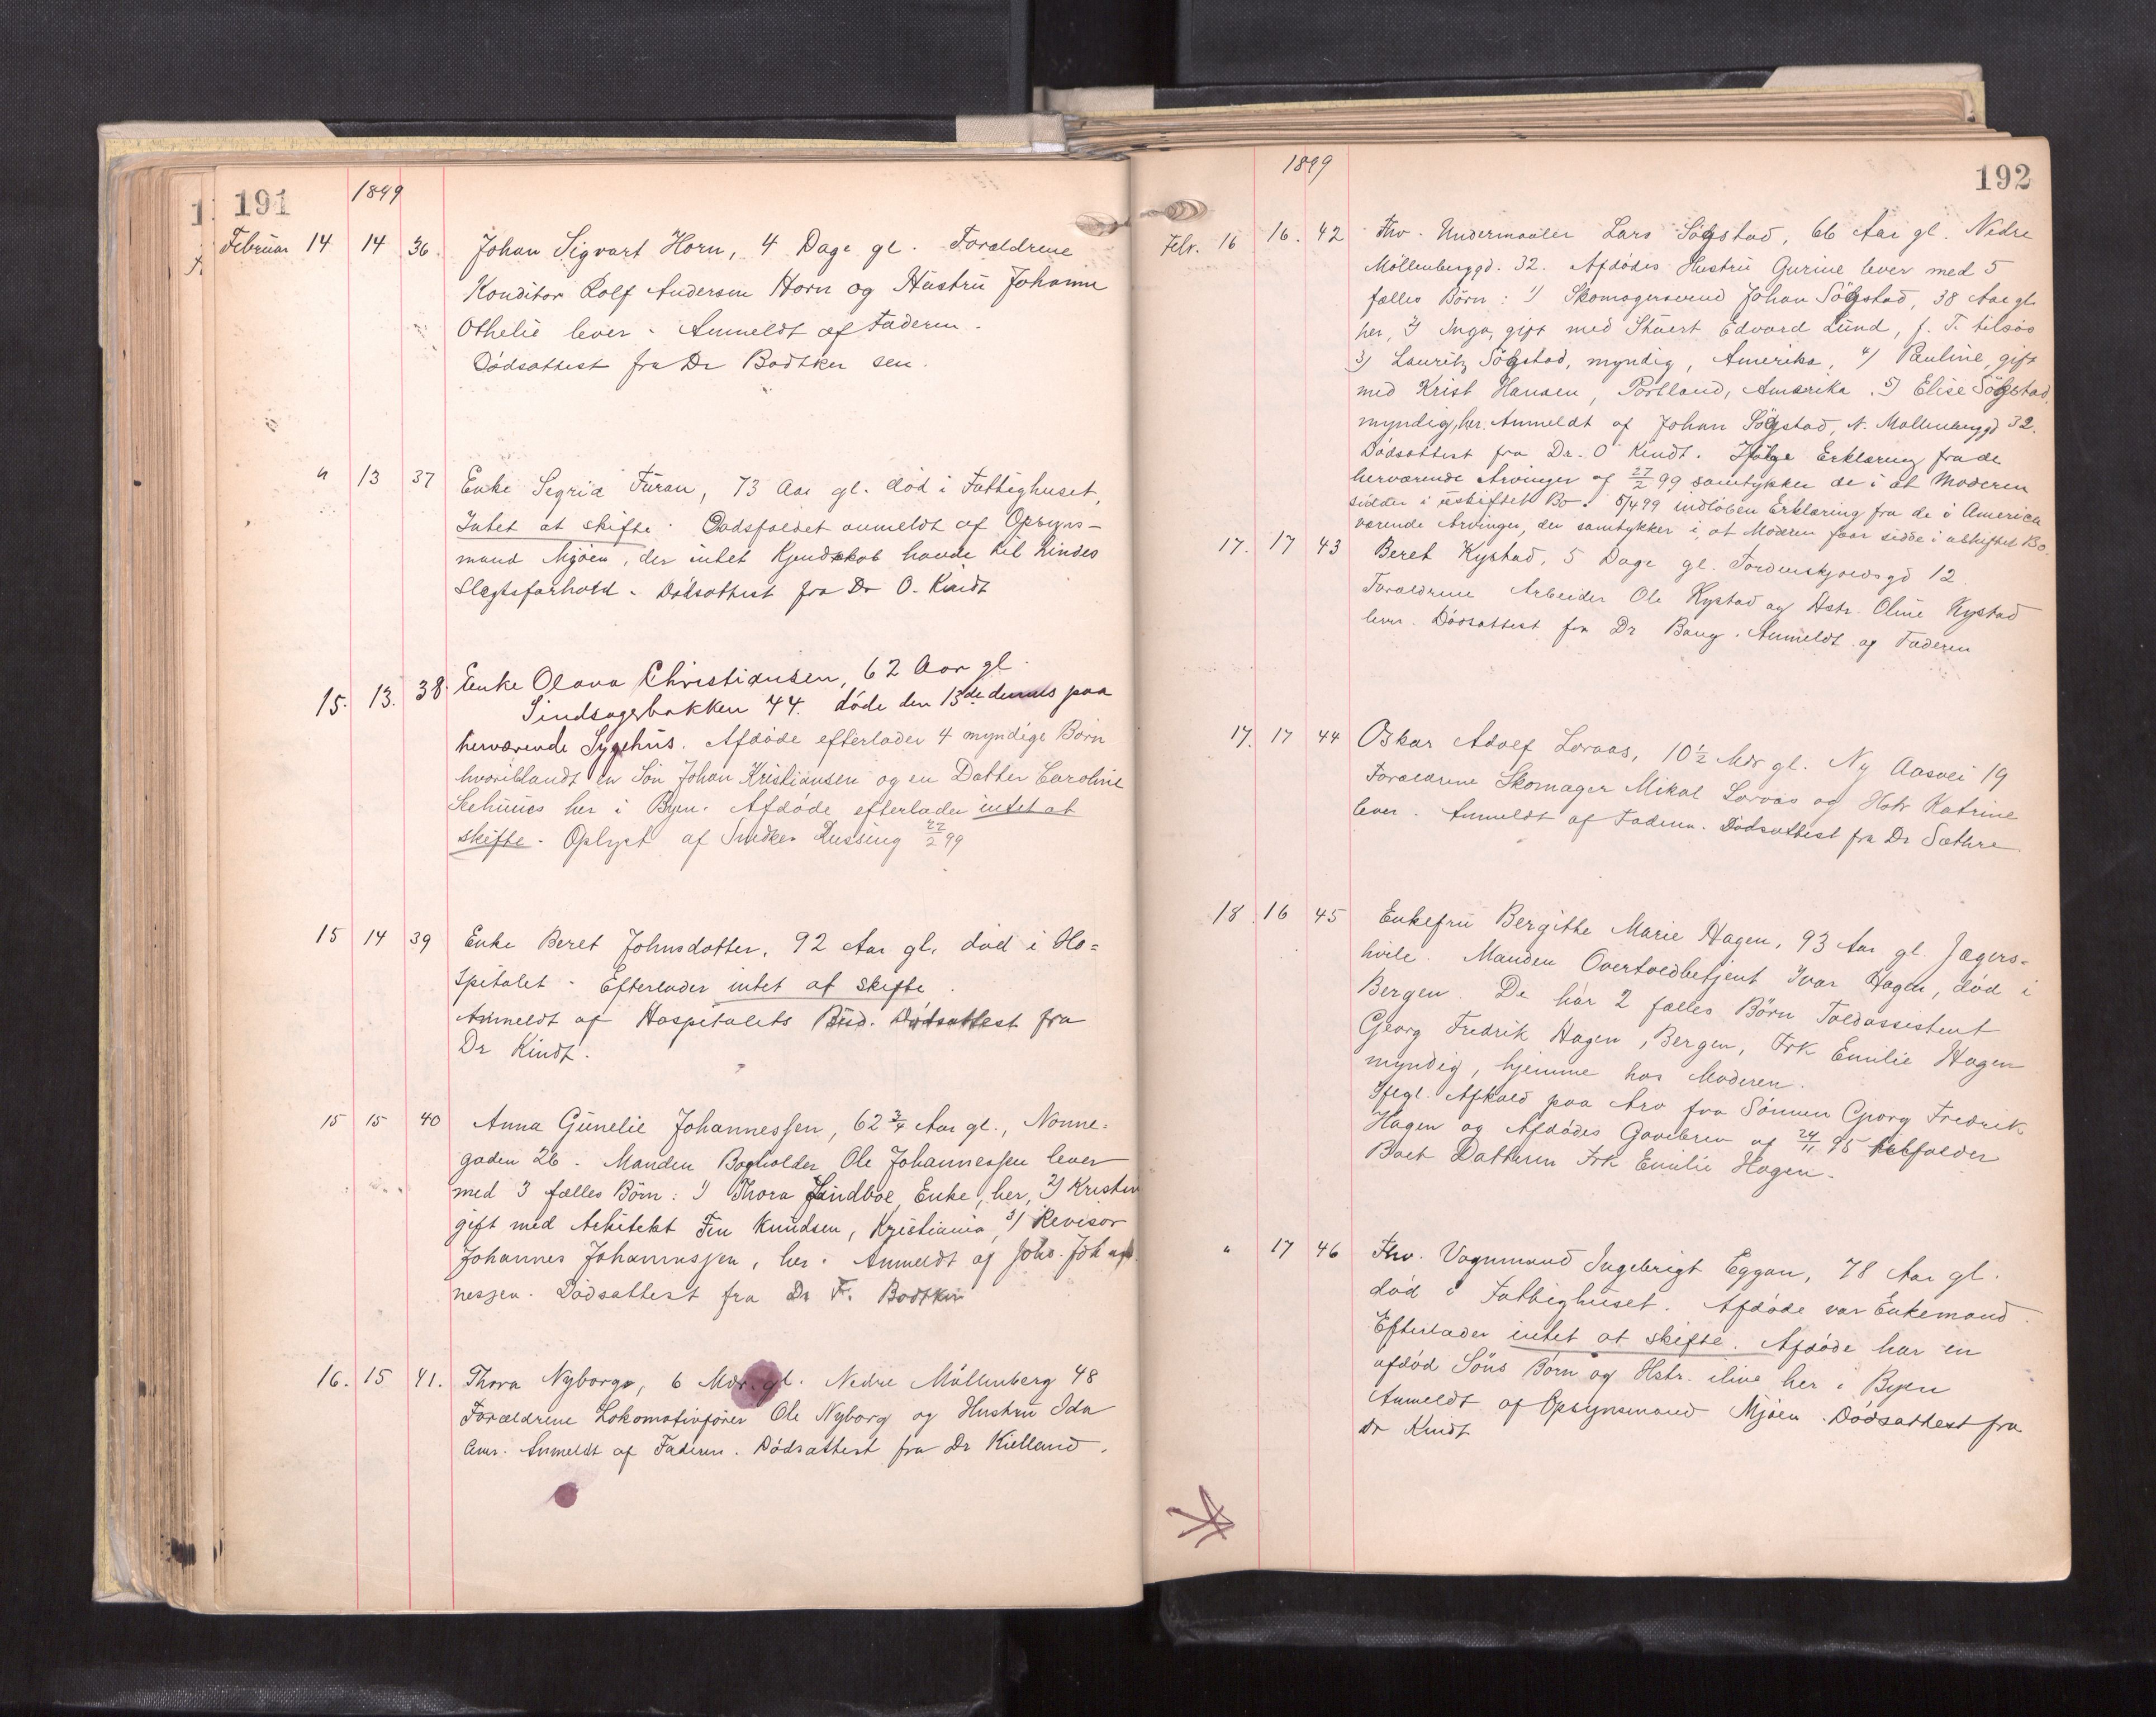 191
1899
Februar 14 14 36. Johan Sigvart Horn, 4 Dage gl. Forældrene
Konditor Rolf Andersen Horn og Hustru Johanne
Othelie lever. Anmeldt af Faderen.
Dödsattest fra Dr Bødtker sen.
" 13 37 Enke Segrid Furan, 73 Aar gl. død i Fattighuset,
Intet at skifte. Dødsfaldet anmeldt af Opsyns-
mand Mjöen, der intet Kjendskab havde til hindes
Slegtsforhold. Dödsattest fra Dr O. Kindt
15. 13. 38. Enke Olava Christiansen, 62 Aar gl.
Sindsagerbakken 44. döde den 13de dennes paa
herværende Sygehus. Afdøde efterlader 4 myndige Børn
hvoriblandt en Søn Johan Kristiansen og en Datter Caroline
her i Byen. Afdøde efterlader intet at
skifte. Oplyst af Snedker Russing 22/2 99
15 14 39 Enke Beret Johnsdatter, 92 Aar gl. død i Ho=
spitalet. Efterlader intet at skifte.
Anmeldt af Hospitalets Bud. Dødsattest fra
Dr Kindt.
15 15 40 Anna Gunelie Johannessen, 62 3/4 Aar gl., Nonne=
gaden 26. Manden Bogholder Ole Johannessen lever
med 3 fælles Børn: 1) Thora Lindboe, Enke, her, 2) Kristin
gift med Arkitekt Fin Knudsen, Kristiania, 3) Revisor
Johannes Johannessen, her. Anmeldt af Johs. Johan
nessen. Dödsattest fra Dr F. Bødtker
16. 15 41. Thora Nyborg, 6 Mdr. gl. Nedre Möllenberg 48
Forældrene Lokomotivfører Ole Nyborg og Hustru Ida
lever. Anmeldt af Faderen. Dödsattest fra Dr Kielland.
1899
192
Febr. 16 16. 42 Fhv. Undermaaler Lars Sögstad, 66 Aar gl. Nedre
Möllenberggd. 32. Afdödes Hustru Gurine lever med 5
fælles Börn: 1) Skomagersvend Johan Sögstad, 38 Aar gl.
her, 2) Inga, gift med Stuert Edvard Lund, f. T. tilsøs
3) Lauritz Sögstad, myndig, Amerika, 4) Pauline, gift
med Krist Hansen, Portland, Amerika. 5) Elise Sögstad,
myndig, her. Anmeldt af Johan Sögstad, N. Mollenberggd 32.
Dödsattest fra Dr. O Kindt. Ifölge Erklæring fra de
herværende Arvinger af 27/2 99 samtykker de i at Moderen
sidder i uskiftet Bo. 5/4 99 indløben Erklæring fra de i America
værende Arvinger, der samtykker i, at Moderen faar sidde i uskiftet Bo.
17. 17 43 Beret Kystad, 5 Dage gl. Tordenskjoldsgd 12.
Forældrene Arbeider Ole Kystad og Hstr. Oline Kystad
lever. Dödsattest fra Dr Bang. Anmeldt af Faderen
17. 17 44 Oskar Adolf Lovaas, 10 1/2 Mdr gl. Ny Aasvei 19
Forældrene Skomager Mikal Lovaas og Hstr Katrine
lever. Anmeldt af Faderen. Dødsattest fra Dr Sæthre
18 16 45 Enkefru Bergitte Marie Hagen, 93 Aar gl. Jægers-
hvile. Manden Overtoldbetjent Ivar Hagen, død i
Bergen. De har 2 fælles Børn Toldassistent
Georg Fredrik Hagen, Bergen, Frk Emilie Hagen
myndig, hjemme hos Moderen.
Ifgl. Afkald paa Arv fra Sönnen Georg Fredrik
Hagen og Afdödes Gavebrev af 24/11 95 tilfalder
Boet Datteren Frk Emilie Hagen.
" 17 46 Fhv. Vognmand Ingebrigt Eggan, 78 Aar gl.
död i Fattighuset. Afdøde var Enkemand.
Efterlader intet at skifte. Afdøde har en
afdød Söns Börn og Hstr. ilive her i Byen
Anmeldt af Opsynsmand Mjöen. Dödsattest fra
Dr Kindt